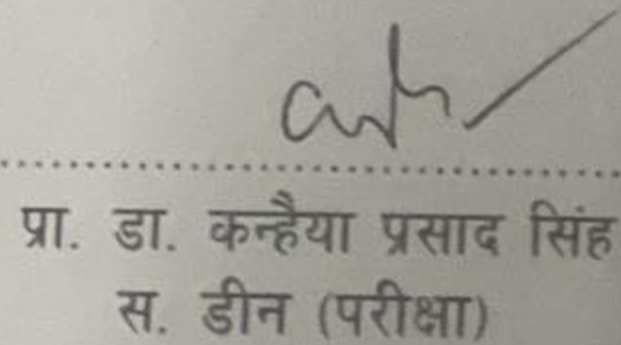 प्रा. डा. कन्हैया प्रसाद सिंह
स. डीन (परीक्षा)